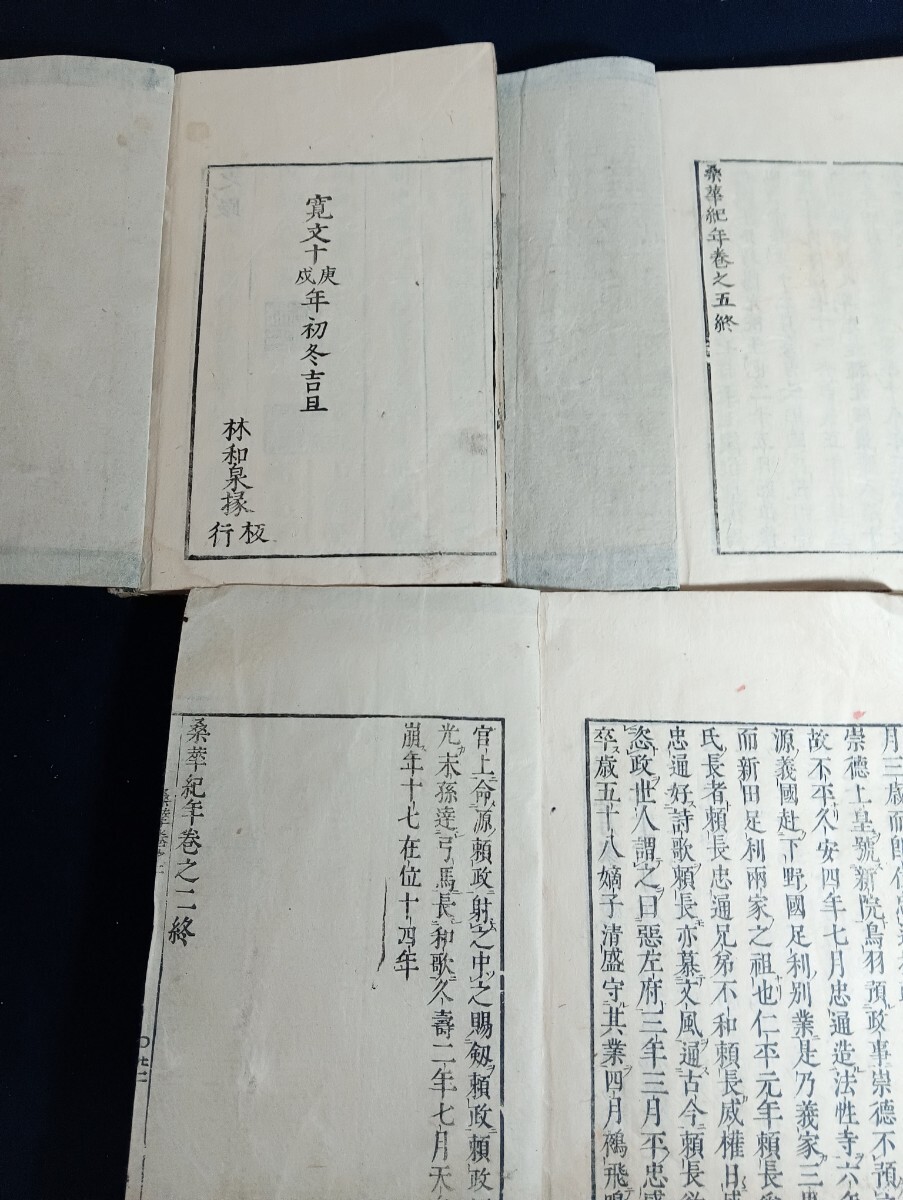 寛文十庚戌年初冬吉旦
林和泉掾
板行
桒華紀年巻之五終
月三歳而即位
崇德上皇號新院鳥羽預政事崇德不預
故不平久安四年七月忠通造法性寺六
源義國赴下野國足利別業是乃義家三
而新田足利兩家之祖也仁平元年頼長
氏長者頼長忠通兄弟不和頼長威權日
忠通好詩歌頼長亦慕文風通古今頼長
恣政世人謂之曰惡左府三年三月平忠盛
卒歳五十八嫡子清盛守其業四月鵺飛鳴
官上命源頼政射之中之賜劔頼政頼政
光末孫達弓馬長和歌久壽二年七月天
崩年十七在位十四年
桒華紀年巻之二終